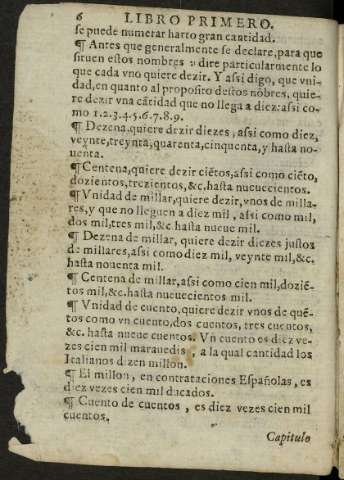 6 LIBRO PRIMERO.
se puede numerar harto gran cantidad.
¶ Antes que generalmente se declare, para que
siruen estos nombres dire particularmente lo
que cada vno quiere dezir. Y assi digo, que vni-
dad, en quanto al proposito destos nõbres, quie-
re dezir vna cãtidad que no llega a diez: assi co-
mo 1.2.3.4.5.6.7.8.9.
¶ Dezena, quiere dezir diezes, assi como diez,
veynte, treynta, quarenta, cinquenta, y hasta no-
uenta.
¶ Centena, quiere dezir ciẽtos, assi como ciẽto,
dozientos, trezientos, &c. hasta nueuecientos.
¶ Vnidad de millar, quiere dezir, vnos de milla-
res, y que no lleguen a diez mil, assi como mil,
dos mil, tres mil, &c. hasta nueue mil.
¶ Dezena de millar, quiere dezir diezes justos
de millares, assi como diez mil, veynte mil, &c.
hasta nouenta mil.
¶ Centena de millar, assi como cien mil, doziẽ-
tos mil, &c. hasta nueuecientos mil.
¶ Vnidad de cuento, quiere dezir vnos de quẽ-
tos como vn cuento, dos cuentos, tres cuentos,
&c. hasta nueue cuentos. Vn cuento es diez ve-
zes cien mil marauedis, a la qual cantidad los
Italianos dizen millon.
¶ El millon, en contrataciones Españolas, es
diez vezes cien mil ducados.
¶ Cuento de cuentos, es diez vezes cien mil
cuentos.
Capitulo